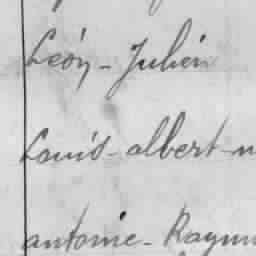 Léon - Julien
Louis - albert -
antoine -